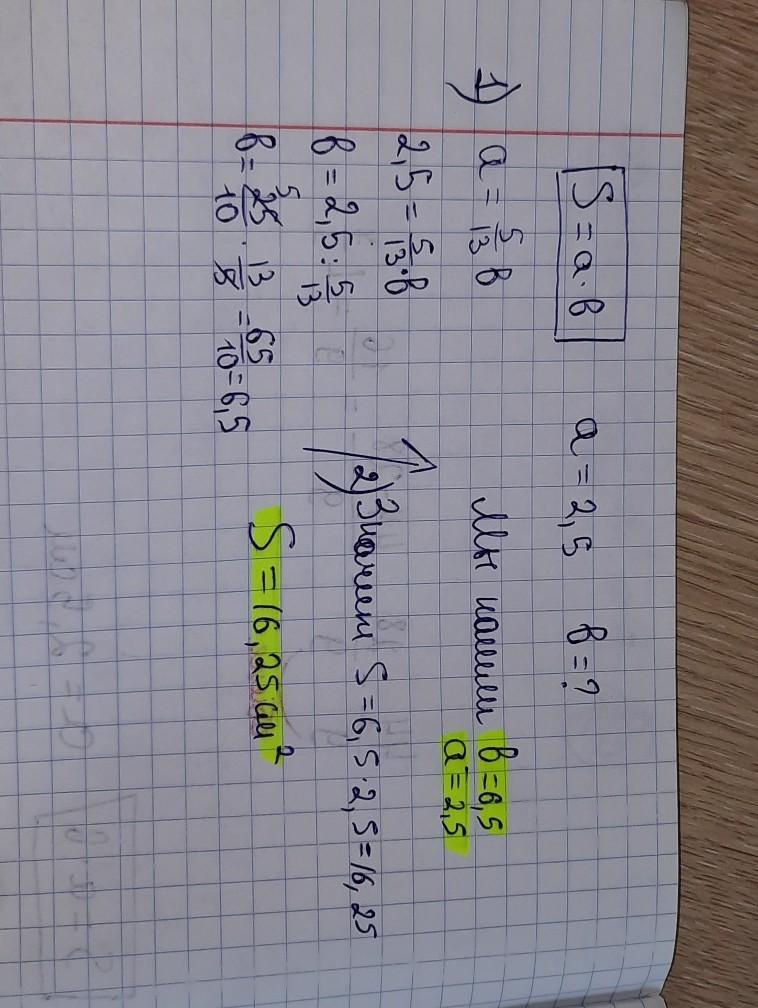 S = a · b   a = 2,5   b = ?
1) a = 5/13 b
2,5 = 5/13 · b
b = 2,5 : 5/13
b = 25/10 · 13/5 = 65/10 = 6,5
5
Мы нашли b = 6,5
a = 2,5
2) Значит S = 6,5 · 2,5 = 16,25
S = 16,25 см²